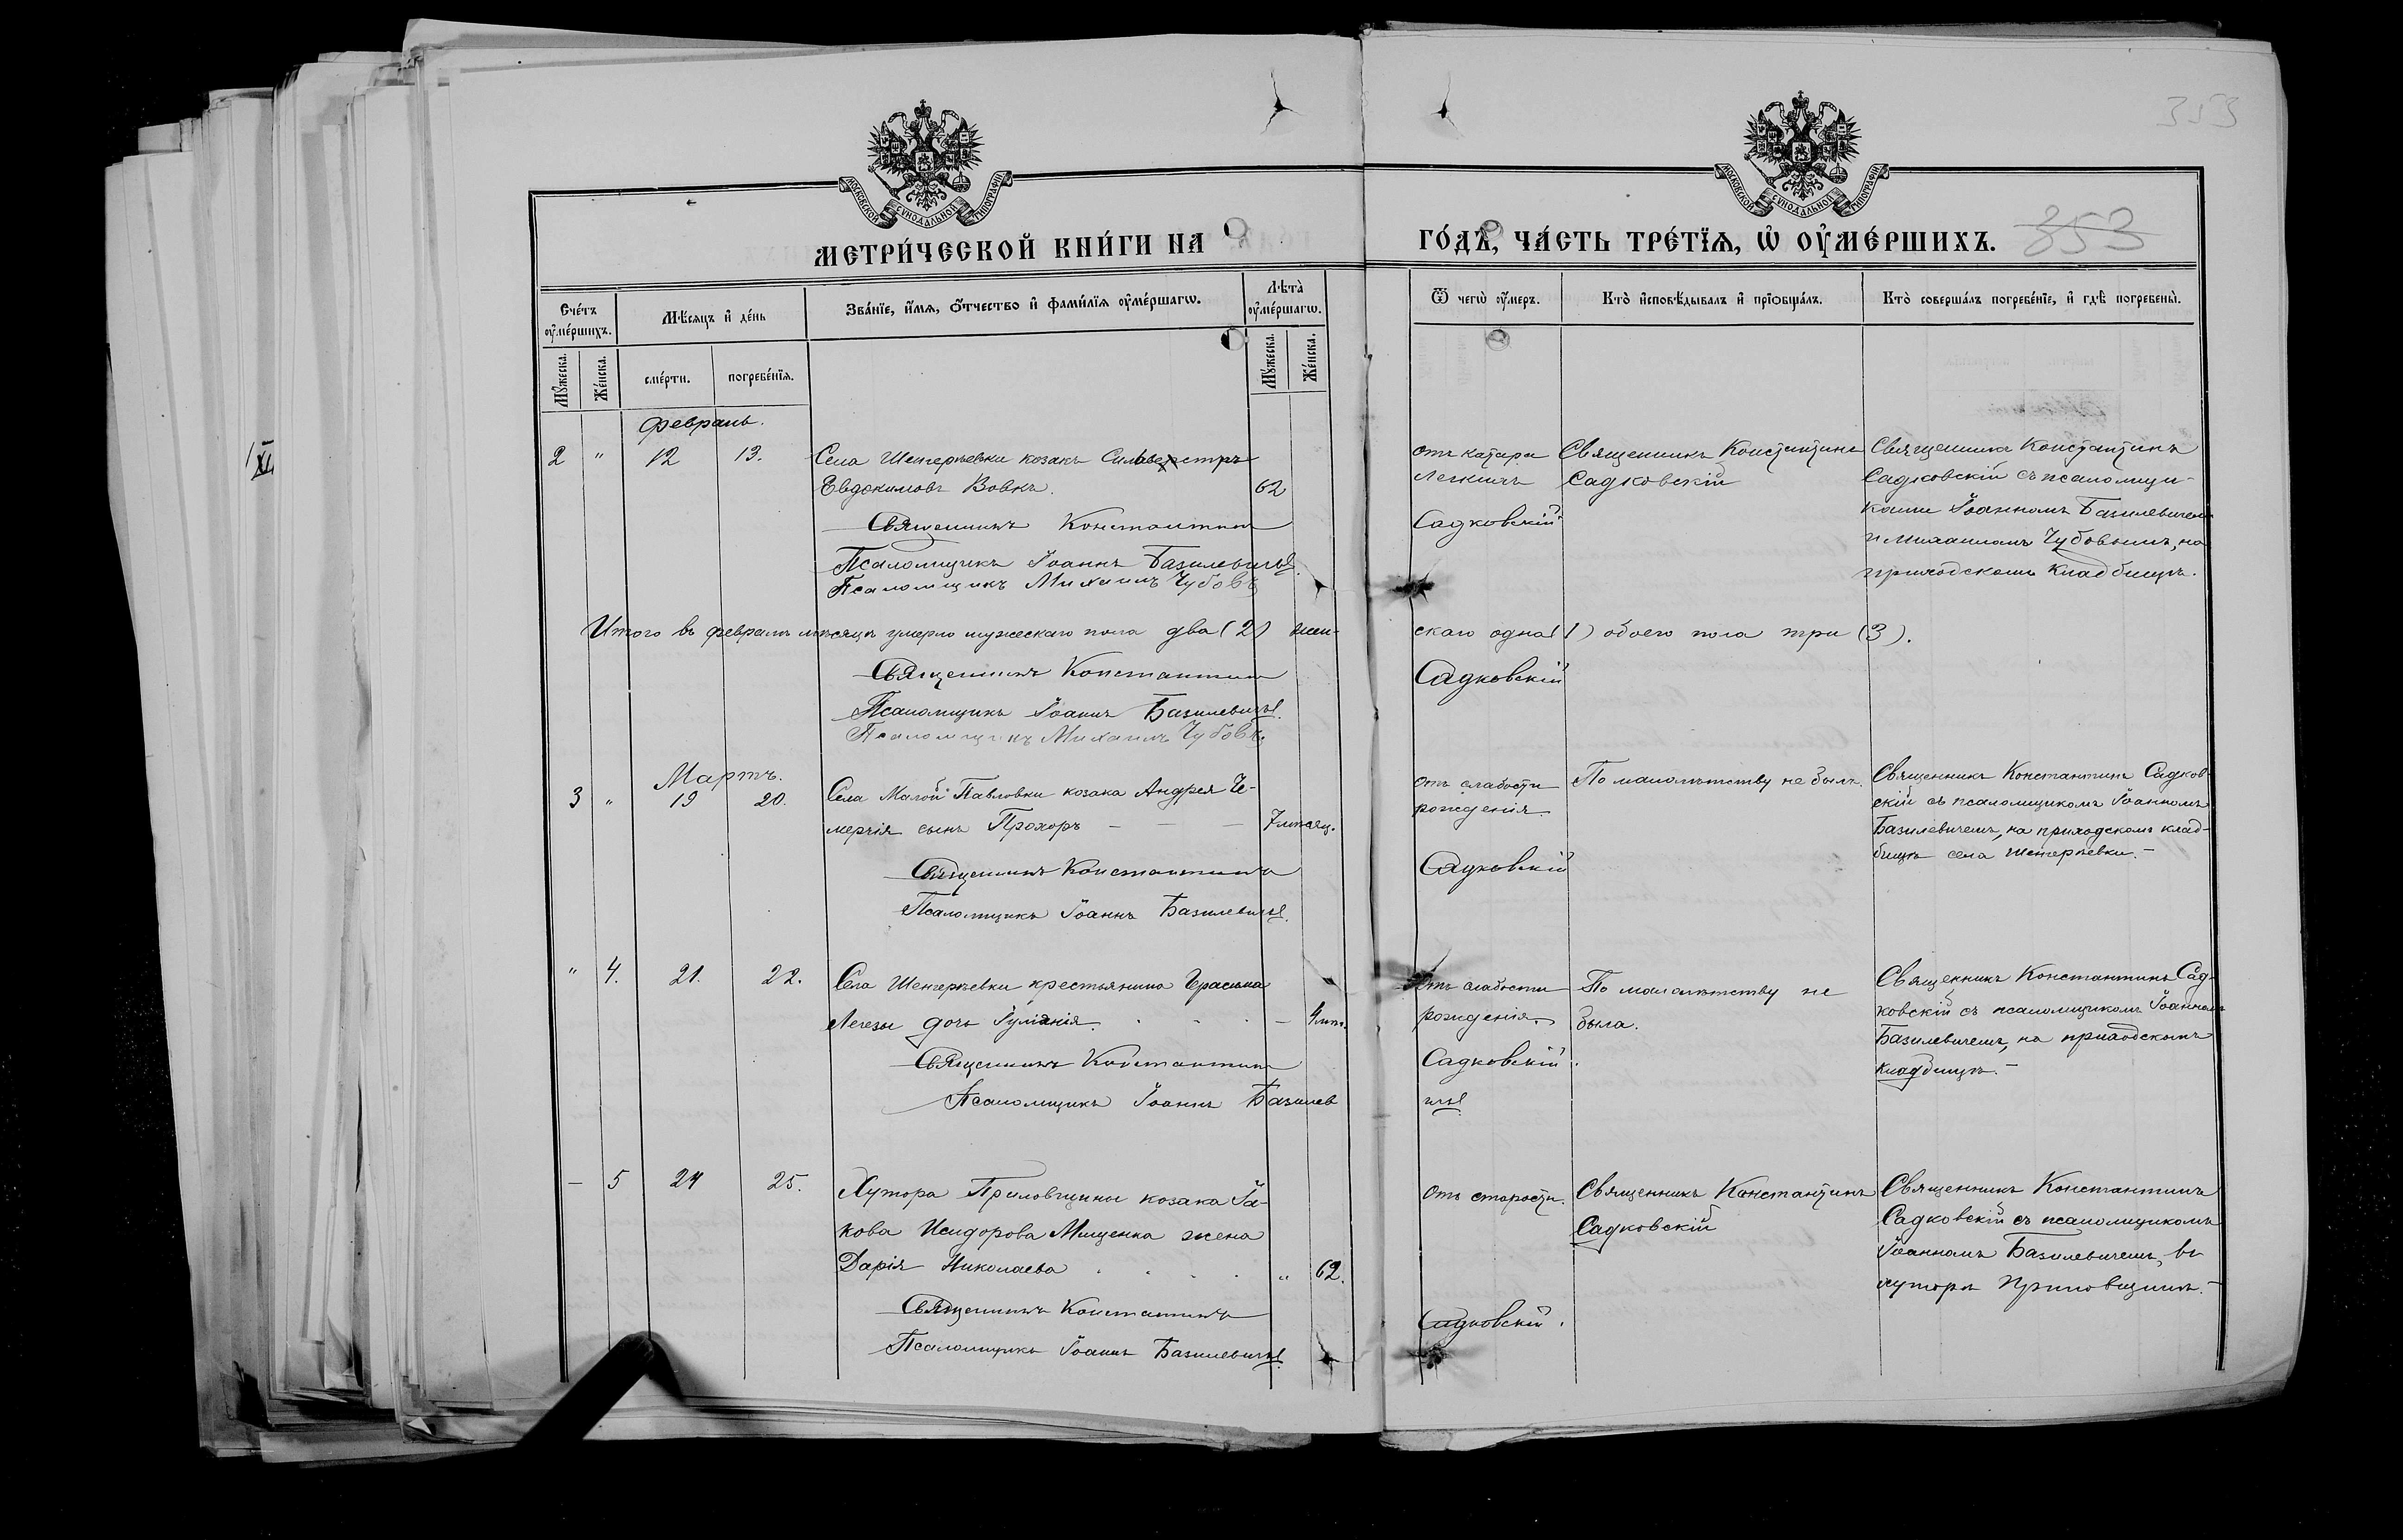 353
МОСКОВСКОЙ СѴНОДАЛЬНОЙ ТИПОГРАФІИ
МОСКОВСКОЙ СѴНОДАЛЬНОЙ ТИПОГРАФІИ
МЕТРИ́ЧЕСКОЙ КНИ́ГИ НА
ГО́ДЪ, ЧА́СТЬ ТРЕ́ТЇѦ, Ѡ҆ ОУ҆МЕ́РШИХЪ. 353
Сче́тъ оу҆ме́ршихъ.
Мꙋ́жеска. Же́нска.
Мѣ́сяцъ и҆ де́нь
сме́рти. погребе́нїѧ.
Зва́нїе, и҆́мѧ, ѻ҆́тчество и҆ фами́лїѧ оу҆ме́ршагѡ.
Лѣ́та̀ оу҆ме́ршагѡ.
Мꙋ́жеска. Же́нска.
Ѿ чегѡ̀ оу҆́меръ.
Кто̀ и҆сповѣ́дывалъ и҆ прїѻбща́лъ.
Кто̀ соверша́лъ погребе́нїе, и҆ гдѣ̀ погребены̀.
Февраль.
2 " 12 13.
Села Шенгерѣевки козакъ Сильвестръ
Евдокимовъ Вовкъ. 62
Священникъ Константинъ
Псаломщикъ Іоаннъ Базилевичъ.
Псаломщикъ Михаилъ Чубовъ
отъ катара
Легкихъ
Садковскій
Священникъ Константинъ
Садковскій
Священникъ Константинъ
Садковскій съ псаломщи-
ками Іоанномъ Базилевичемъ
и Михаиломъ Чубовымъ, на
приходскомъ кладбищѣ.
Итого въ февралѣ мѣсяцѣ умерло мужескаго пола два (2) жен-
скаго одна (1) обоего пола три (3).
Священникъ Константинъ
Садковскій
Псаломщикъ Іоаннъ Базилевичъ.
Псаломщикъ Михаилъ Чубовъ.
Мартъ.
3 " 19 20.
Села Малой Павловки козака Андрея Че-
мерчія сынъ Прохоръ — — — 7 мѣсяц.
Священникъ Константинъ
Псаломщикъ Іоаннъ Базилевичъ.
отъ слабости
рожденія.
Садковскій
По малолѣтству не былъ.
Священникъ Константинъ Садков-
скій съ псаломщикомъ Іоанномъ
Базилевичемъ, на приходскомъ клад-
бищѣ села Шенгерѣевки.—
" 4. 21. 22.
Села Шенгерѣевки крестьянина Герасима
Легезы дочь Іуліанія. — 4 мѣс.
Священникъ Константинъ
Псаломщикъ Іоаннъ Базилев
отъ слабости
рожденія.
Садковскій.
ичъ
По малолѣтству не
была.
Священникъ Константинъ Сад-
ковскій съ псаломщикомъ Іоанномъ
Базилевичемъ, на приходскомъ
кладбищѣ.—
— 5 24 25.
Хутора Приловщины козака Іа-
кова Исидорова Мищенка жена
Дарія Николаева . . . . " 62.
Священникъ Константинъ
Псаломщикъ Іоаннъ Базилевичъ.
Отъ старости.
Садковскій.
Священникъ Константинъ
Садковскій
Священникъ Константинъ
Садковскій съ псаломщикомъ
Іоанномъ Базилевичемъ, въ
хуторѣ Приловщинѣ.—